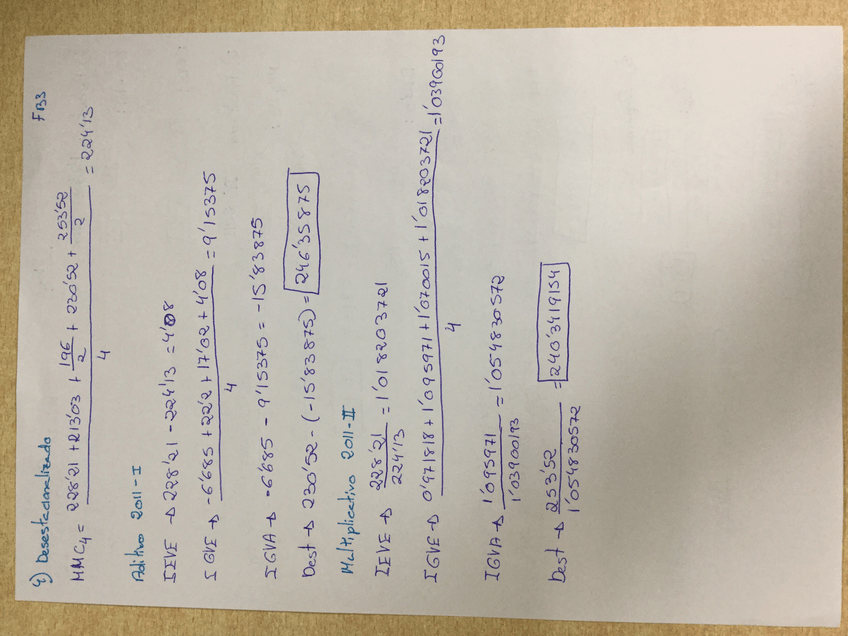 4) Desestacionalizado FB3
MMC₄ = (228'21 + 213'03 + 196/2 + 230'52 + 253'52/2) / 4 = 224'13
Aditivo 2011-I
IEVE → 228'21 - 224'13 = 4'08
IGVE → (-6'685 + 22'2 + 17'02 + 4'08) / 4 = 9'15375
IGVA → -6'685 - 9'15375 = -15'83875
Dest → 230'52 - (-15'83875) = 246'35875
Multiplicativo 2011-II
IEVE → 228'21 / 224'13 = 1'018203721
IGVE → (0'971818 + 1'095971 + 1'070015 + 1'018203721) / 4 = 1'03900193
IGVA → 1'095971 / 1'03900193 = 1'054830572
Dest → 253'52 / 1'054830572 = 240'3419154